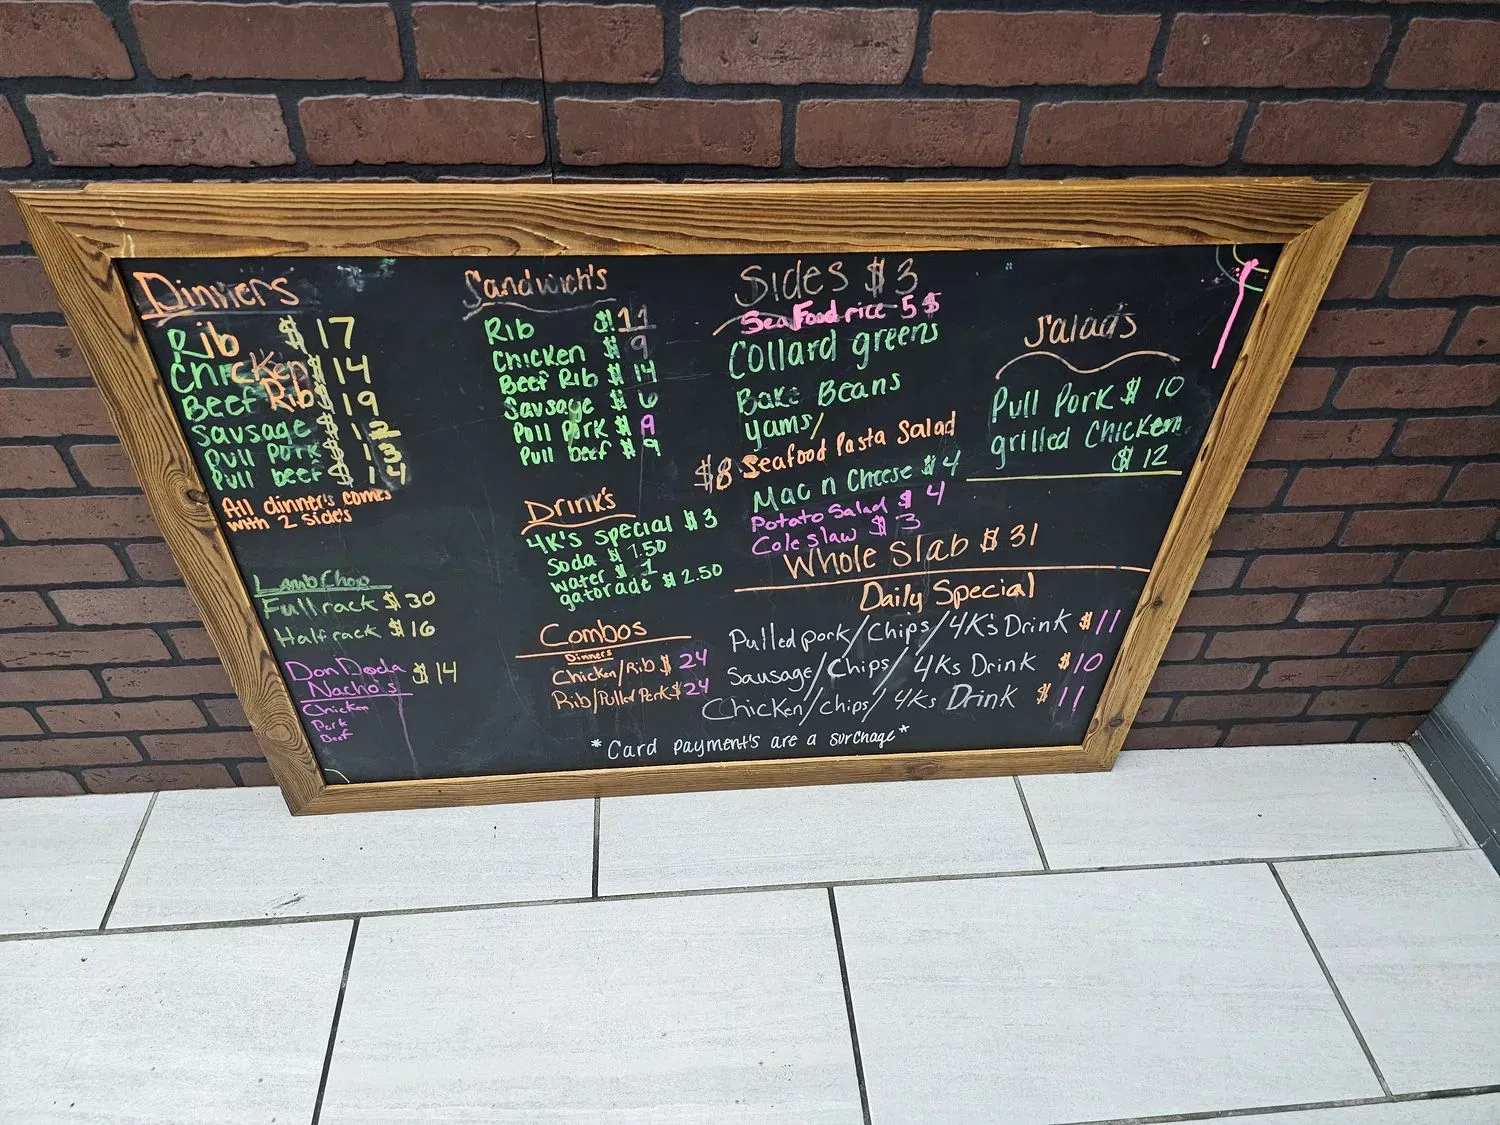 Dinners
Rib $17
Chicken $14
Beef Rib $19
Sausage $12
Pull pork $13
Pull beef $14
All dinner's comes
with 2 side's
Lamb Chop
Full rack $30
Half rack $16
Don Doda $14
Nacho's
Chicken
Pork
Beef
Sandwich's
Rib $11
Chicken $9
Beef Rib $14
Sausage $6
Pull Pork $9
Pull beef $9
Drink's
4K's special $3
Soda $1.50
water $1
gatorade $2.50
Combos
Dinners
Chicken/Rib $24
Rib/Pulled Pork $24
Sides $3
Sea Food rice 5$
Collard greens
Bake Beans
yams/
$8 Seafood Pasta Salad
Mac n Cheese $4
Potato Salad $4
Cole slaw $3
Whole Slab $31
Salads
Pull Pork $10
grilled Chicken
$12
Daily Special
Pulled pork/Chips/4K's Drink $11
Sausage/Chips/4Ks Drink $10
Chicken/chips/4Ks Drink $11
*Card payment's are a surchage*